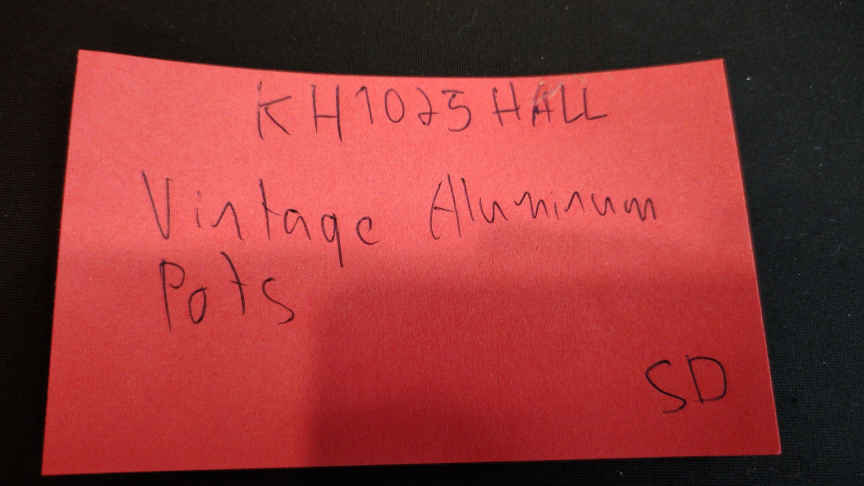 KH1025 HALL
Vintage Aluminum
Pots
SD